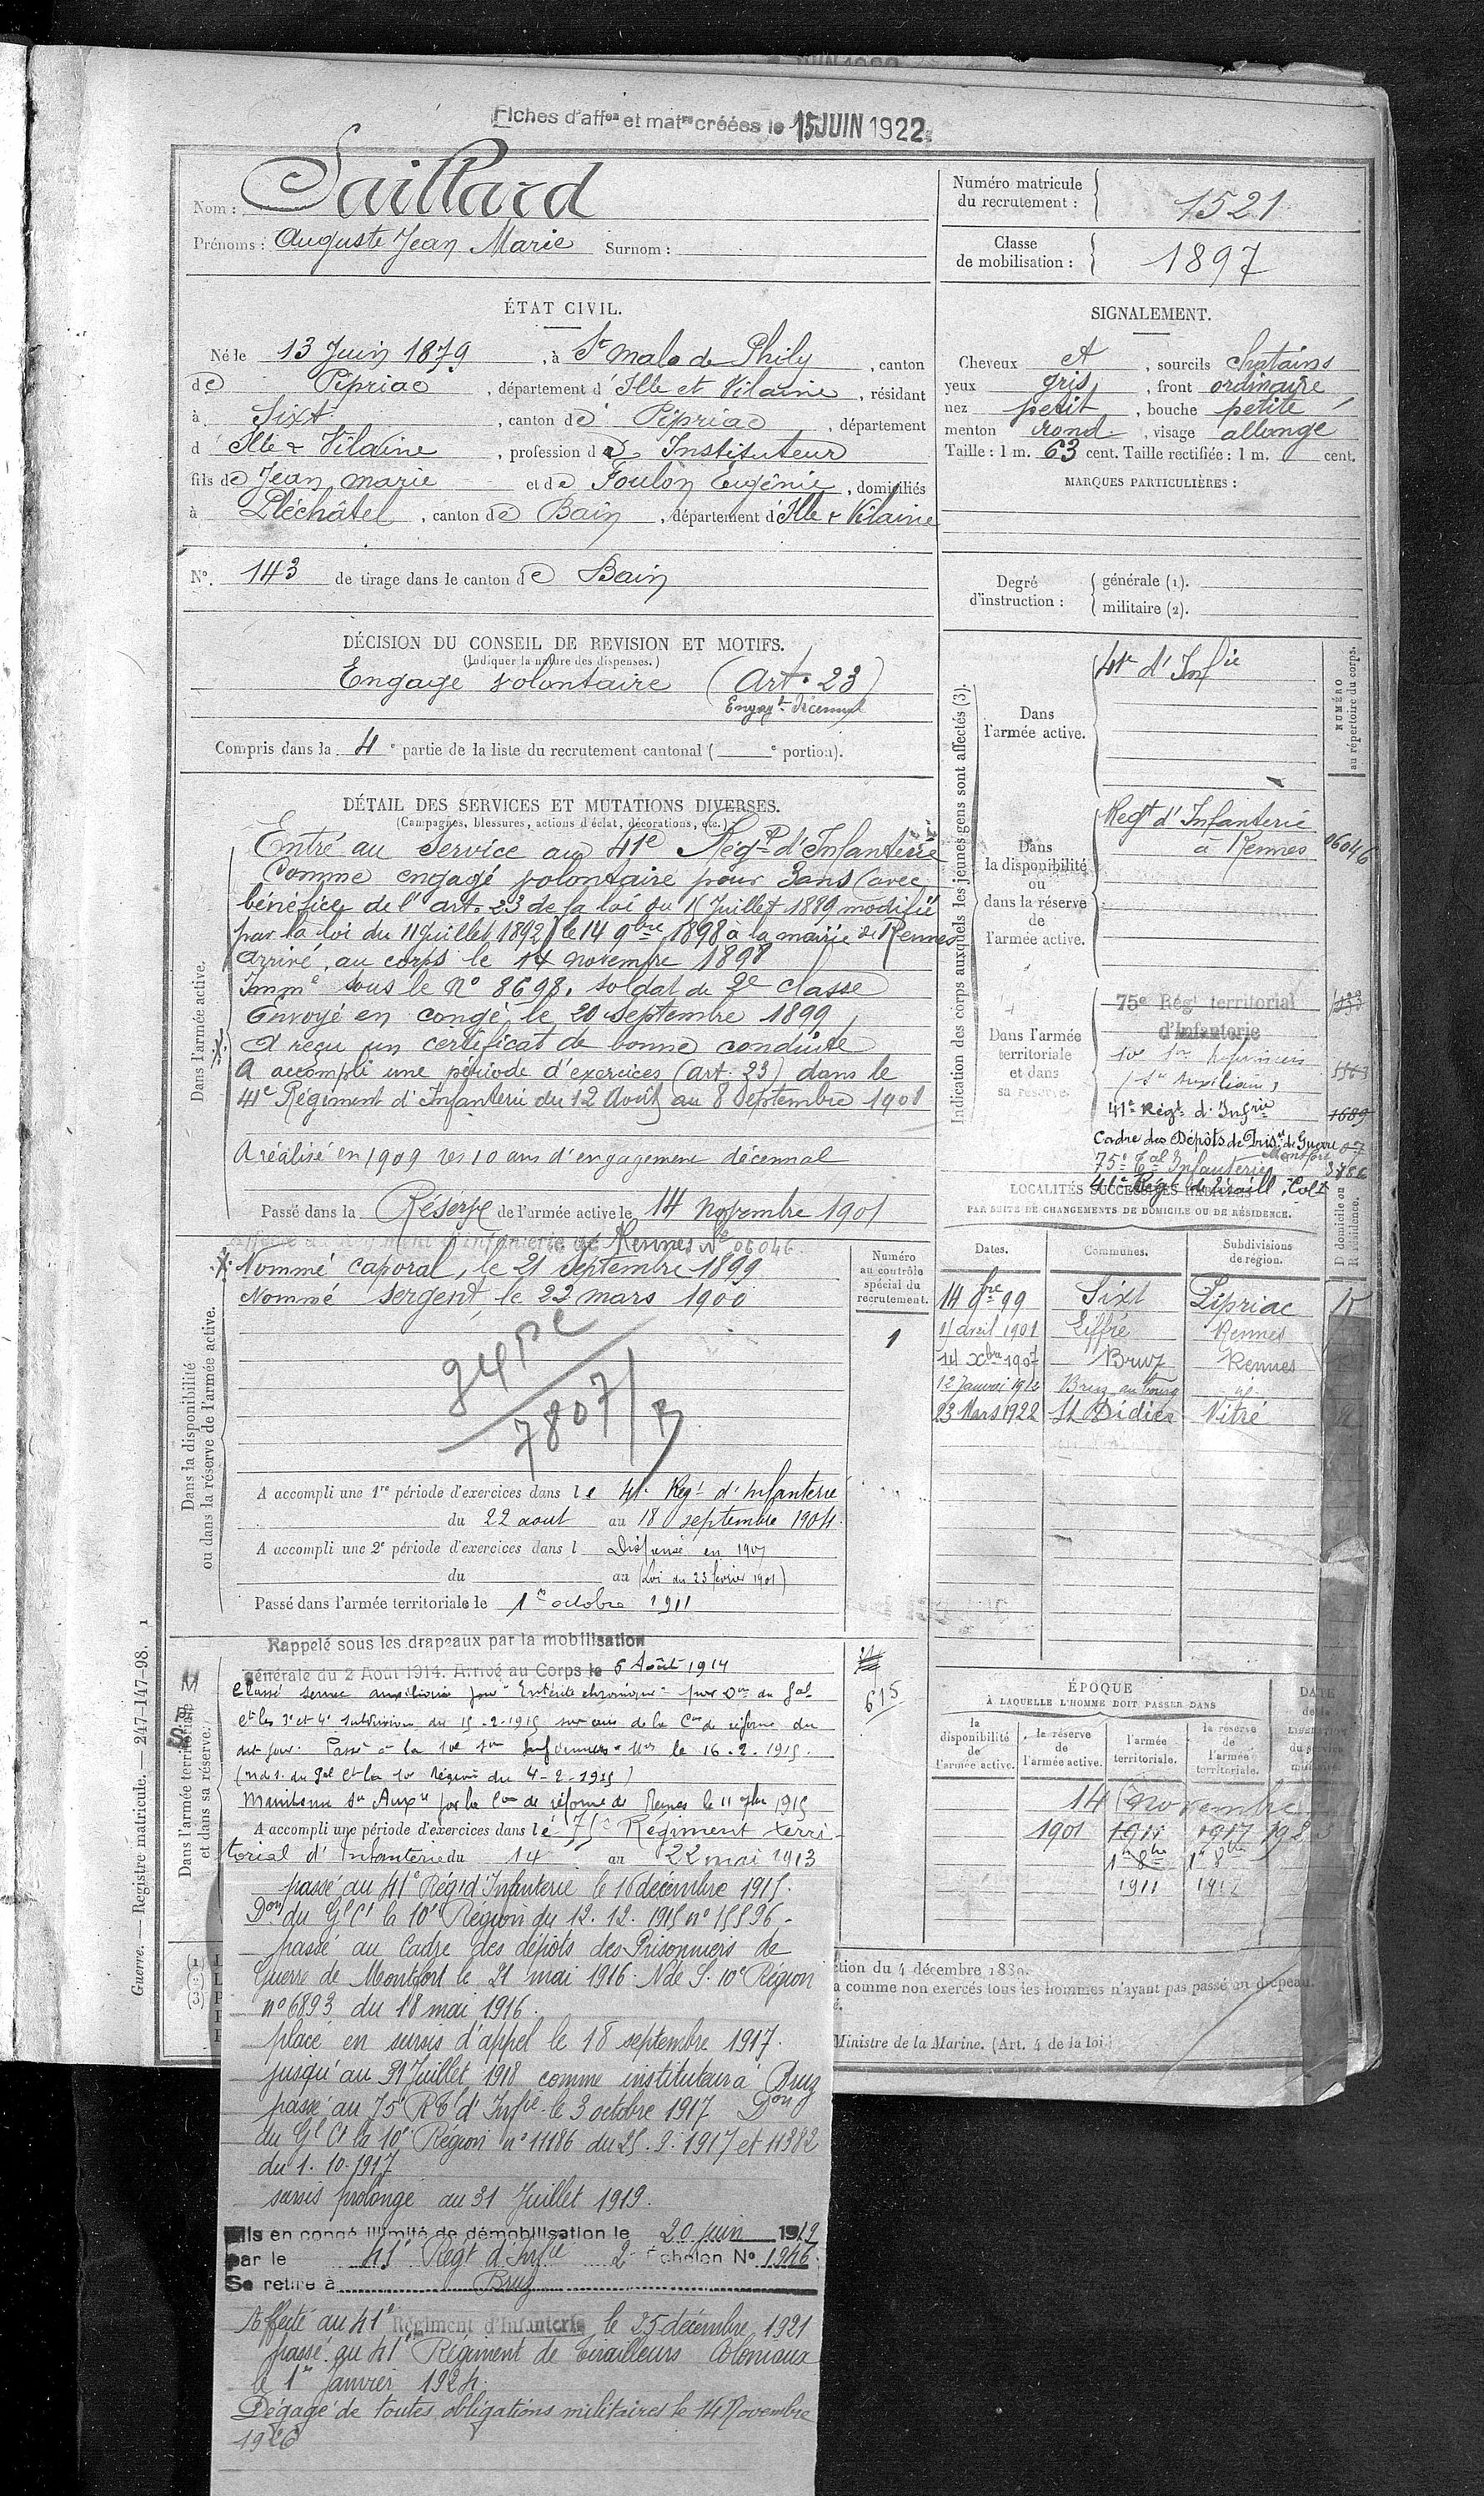 Fiches d'aff^on et mat^re créées le 15 JUIN 1922
Nom : Saillard
Prénoms : Auguste Jean Marie Surnom :
Numéro matricule du recrutement : 1521
Classe de mobilisation : 1897
ÉTAT CIVIL.
Né le 13 Juin 1879, à St Malo de Phily, canton
de Pipriac, département d'Ille et Vilaine, résidant
à Sixt, canton de Pipriac, département
d Ille & Vilaine, profession d Instituteur
fils de Jean Marie et de Foulon Eugénie, domiciliés
à Pléchâtel, canton de Bain, département d'Ille & Vilaine
N°. 143 de tirage dans le canton de Bain
SIGNALEMENT.
Cheveux et, sourcils chatains
yeux gris, front ordinaire
nez petit, bouche petite
menton rond, visage allongé
Taille : 1 m. 63 cent. Taille rectifiée : 1 m. cent.
MARQUES PARTICULIÈRES :
Degré d'instruction : générale (1).
militaire (2).
DÉCISION DU CONSEIL DE REVISION ET MOTIFS.
(Indiquer la nature des dispenses.)
Engagé volontaire (Art. 23)
Engag^t décennal
Compris dans la 4e partie de la liste du recrutement cantonal ( e portion).
DÉTAIL DES SERVICES ET MUTATIONS DIVERSES.
(Campagnes, blessures, actions d'éclat, décorations, etc.)
Dans l'armée active.
Entré au service au 41e Régt d'Infanterie
Comme engagé volontaire pour 3 ans (avec
bénéfice de l'art. 23 de la loi du 15 Juillet 1889 modifié
par la loi du 11 Juillet 1892) le 14 9bre 1898 à la mairie de Rennes
arrivé au corps le 14 novembre 1898
Imm^é sous le N° 8698. soldat de 2e classe
Envoyé en congé le 20 septembre 1899
A reçu un certificat de bonne conduite
A accompli une période d'exercices (art. 23) dans le
41e Régiment d'Infanterie du 12 Août au 8 Septembre 1901
A réalisé en 1909 ses 10 ans d'engagement décennal
Passé dans la Réserve de l'armée active le 14 Novembre 1901
Dans la disponibilité
ou dans la réserve de l'armée active.
Affecté au Régiment d'Infanterie de Rennes N° 06046
Nommé caporal, le 21 Septembre 1899
Nommé sergent le 22 mars 1900
7807/
A accompli une 1re période d'exercices dans le 41e Régt d'Infanterie
du 22 aout au 18 septembre 1904.
A accompli une 2e période d'exercices dans l Dispensé en 1907
du au (Loi du 23 février 1901)
Passé dans l'armée territoriale le 1er octobre 1911
Numéro au contrôle spécial du recrutement.
1
615
Indication des corps auxquels les jeunes gens sont affectés (3).
NUMÉRO au répertoire du corps.
Dans l'armée active.
41e d'Infie
Dans la disponibilité ou dans la réserve de l'armée active.
Régt d'Infanterie
à Rennes 06046
Dans l'armée territoriale et dans sa réserve.
75e Régt territorial
d'Infanterie
(Sce Auxiliaire)
41e Régt d'Infrie 1689
Cadre des Dépôts de Pris^rs de Guerre
Montfort
75e Tal Infanterie
41e Régt de Tiraill. Colx
LOCALITÉS SUCCESSIVES HABITÉES
PAR SUITE DE CHANGEMENTS DE DOMICILE OU DE RÉSIDENCE.
Dates. Communes. Subdivisions de région. D domicile ou R résidence.
14 9bre 99 Sixt Pipriac
11 avril 1901 Liffré Rennes
14 Xbre 1907 Bruz Rennes
12 Janvier 1912 Bruz au bourg id.
23 Mars 1922 St Didier Vitré
Dans l'armée territoriale et dans sa réserve.
Rappelé sous les drapeaux par la mobilisation
générale du 2 Août 1914. Arrivé au Corps le 6 Août 1914
Classé service auxiliaire pour "Entérite chronique" par Don du Gal
Ct les 3e et 4e Subdivisions du 15-2-1915 sur avis de la Con de réforme du
dit jour. Passé à la 10e Son Infirmiers Mres le 16-2-1915.
(N. de S. du Gal Ct la 10e Région du 4-2-1915)
Maintenu Sce Auxre par la Con de réforme de Rennes le 11 9bre 1915
A accompli une période d'exercices dans le 75e Régiment terri-
torial d'Infanterie du 14 au 22 mai 1913
passé au 41e Régt d'Infanterie le 16 décembre 1915.
Don du Gl Ct la 10e Région du 12.12.1915 n° 15596.
passé au Cadre des dépôts des Prisonniers de
Guerre de Montfort le 21 mai 1916. N de S. 10e Région
n° 6893 du 18 mai 1916.
placé en sursis d'appel le 18 septembre 1917.
jusqu'au 31 Juillet 1918 comme instituteur à Bruz
passé au 75e RT d'Infie le 3 octobre 1917 Don
du Gl Ct la 10e Région n° 11186 du 25.9.1917 et 11382
du 1.10.1917
sursis prolongé au 31 Juillet 1919.
Mis en congé illimité de démobilisation le 20 juin 1919
par le 41e Régt d'Infie 2e Échelon N° 1946
Se retire à Bruz
Affecté au 41e Régiment d'Infanterie le 25 décembre 1921
passé au 41e Régiment de Tirailleurs Coloniaux
le 1er Janvier 1924.
Dégagé de toutes obligations militaires le 14 Novembre
1926
ÉPOQUE
À LAQUELLE L'HOMME DOIT PASSER DANS
la disponibilité de l'armée active.
la réserve de l'armée active.
l'armée territoriale.
la réserve de l'armée territoriale.
DATE de la LIBÉRATION du service militaire.
14 Novembre
1901 1911 1917 1923
1er 8bre 1er 8bre
1911
ction du 4 décembre 1889.
a comme non exercés tous les hommes n'ayant pas passé au drapeau.
Ministre de la Marine. (Art. 4 de la loi.)
Guerre. — Registre matricule. — 247-147-98. 1